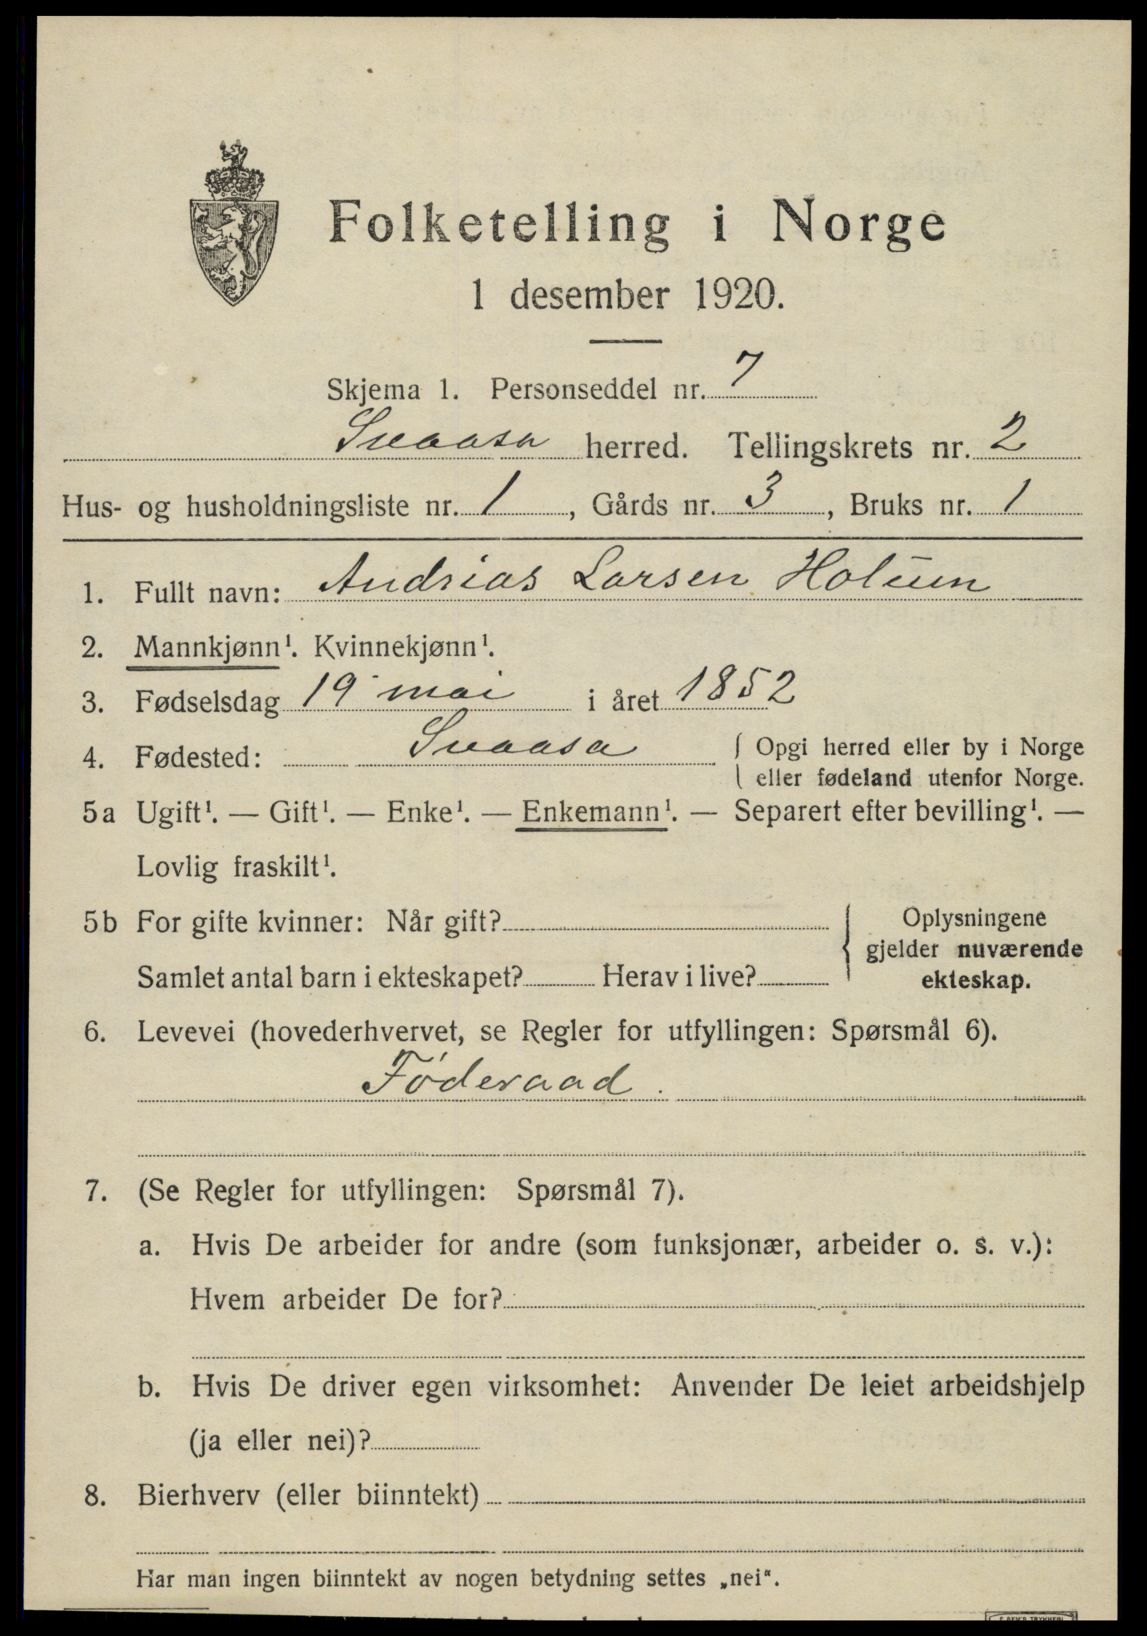 Folketelling i Norge
1 desember 1920.
Skjema 1. Personseddel nr. 7
Snaasa herred. Tellingskrets nr. 2
Hus- og husholdningsliste nr. 1, Gårds nr. 3, Bruks nr. 1
1. Fullt navn: Andrias Larsen Holum
2. Mannkjønn¹. Kvinnekjønn¹.
3. Fødselsdag 19 mai i året 1852
4. Fødested: Snaasa { Opgi herred eller by i Norge
eller fødeland utenfor Norge.
5a Ugift¹. — Gift¹. — Enke¹. — Enkemann¹. — Separert efter bevilling¹. —
Lovlig fraskilt¹.
5b For gifte kvinner: Når gift? { Oplysningene
gjelder nuværende
Samlet antal barn i ekteskapet? Herav i live? ekteskap.
6. Levevei (hovederhvervet, se Regler for utfyllingen: Spørsmål 6).
Føderaad.
7. (Se Regler for utfyllingen: Spørsmål 7).
a. Hvis De arbeider for andre (som funksjonær, arbeider o. s. v.):
Hvem arbeider De for?
b. Hvis De driver egen virksomhet: Anvender De leiet arbeidshjelp
(ja eller nei)?
8. Bierhverv (eller biinntekt)
Har man ingen biinntekt av nogen betydning settes „nei“.